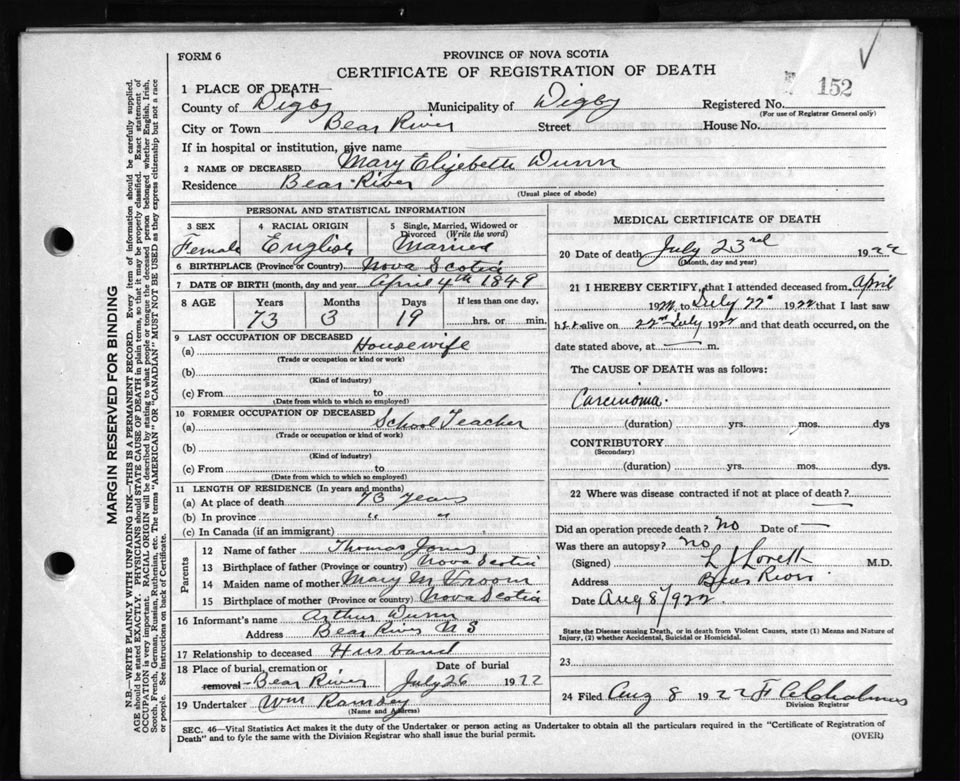 FORM 6
PROVINCE OF NOVA SCOTIA
CERTIFICATE OF REGISTRATION OF DEATH
152
1 PLACE OF DEATH—
County of Digby Municipality of Digby Registered No.
(For use of Registrar General only)
City or Town Bear River Street House No.
If in hospital or institution, give name
2 NAME OF DECEASED Mary Elizebeth Dunn
Residence Bear River
(Usual place of abode)
MARGIN RESERVED FOR BINDING
N.B.—WRITE PLAINLY WITH UNFADING INK—THIS IS A PERMANENT RECORD. Every item of information should be carefully supplied.
AGE should be stated EXACTLY. PHYSICIANS should STATE CAUSE OF DEATH in plain terms, so that it may be properly classified. Exact statement of
OCCUPATION is very important. RACIAL ORIGIN will be described by stating to what people or tongue the deceased person belonged whether English, Irish,
Scotch, French, German, Russian, Ruthenian, etc. The terms "AMERICAN" OR "CANADIAN" MUST NOT BE USED as they express citizenship but not a race
or people. See instructions on back of Certificate.
PERSONAL AND STATISTICAL INFORMATION
3 SEX 4 RACIAL ORIGIN 5 Single, Married, Widowed or
Divorced (Write the word)
Female English Married
6 BIRTHPLACE (Province or Country) Nova Scotia
7 DATE OF BIRTH (month, day and year) April 4th 1849
8 AGE Years Months Days If less than one day,
73 3 19 hrs. or min.
9 LAST OCCUPATION OF DECEASED
(a) Housewife
(Trade or occupation or kind or work)
(b)
(Kind of industry)
(c) From to
(Date from which to which so employed)
10 FORMER OCCUPATION OF DECEASED
(a) School Teacher
(Trade or occupation or kind of work)
(b)
(Kind of industry)
(c) From to
(Date from which to which so employed)
11 LENGTH OF RESIDENCE (In years and months)
(a) At place of death 73 years
(b) In province " "
(c) In Canada (if an immigrant)
Parents
12 Name of father Thomas Jones
13 Birthplace of father (Province or country) Nova Scotia
14 Maiden name of mother Mary M Vroom
15 Birthplace of mother (Province or country) Nova Scotia
16 Informant's name Arthur Dunn
Address Bear River N S
17 Relationship to deceased Husband
18 Place of burial, cremation or Date of burial
removal Bear River July 26 1922
19 Undertaker Wm Ramsey
(Name and Address)
MEDICAL CERTIFICATE OF DEATH
20 Date of death July 23rd 1922
(Month, day and year)
21 I HEREBY CERTIFY, that I attended deceased from April
1922 to July 22d 1922 that I last saw
her alive on 22nd July 1922 and that death occurred, on
date stated above, at — m.
The CAUSE OF DEATH was as follows:
Carcinoma.
(duration) yrs. mos. dys
CONTRIBUTORY
(Secondary)
(duration) yrs. mos. dys.
22 Where was disease contracted if not at place of death?
—
Did an operation precede death? No Date of —
Was there an autopsy? No
(Signed) L J Lovett M.D.
Address Bear River
Date Aug 8/922
State the Disease causing Death, or in death from Violent Causes, state (1) Means and Nature of
Injury, (2) whether Accidental, Suicidal or Homicidal.
23
24 Filed Aug 8 1922
Division Registrar
SEC. 46—Vital Statistics Act makes it the duty of the Undertaker or person acting as Undertaker to obtain all the particulars required in the "Certificate of Registration of
Death" and to fyle the same with the Division Registrar who shall issue the burial permit.
(OVER)